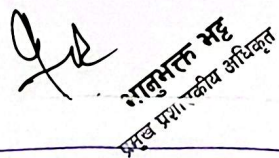 भानुभक्त भट्ट
प्रमुख प्रशासकीय अधिकृत